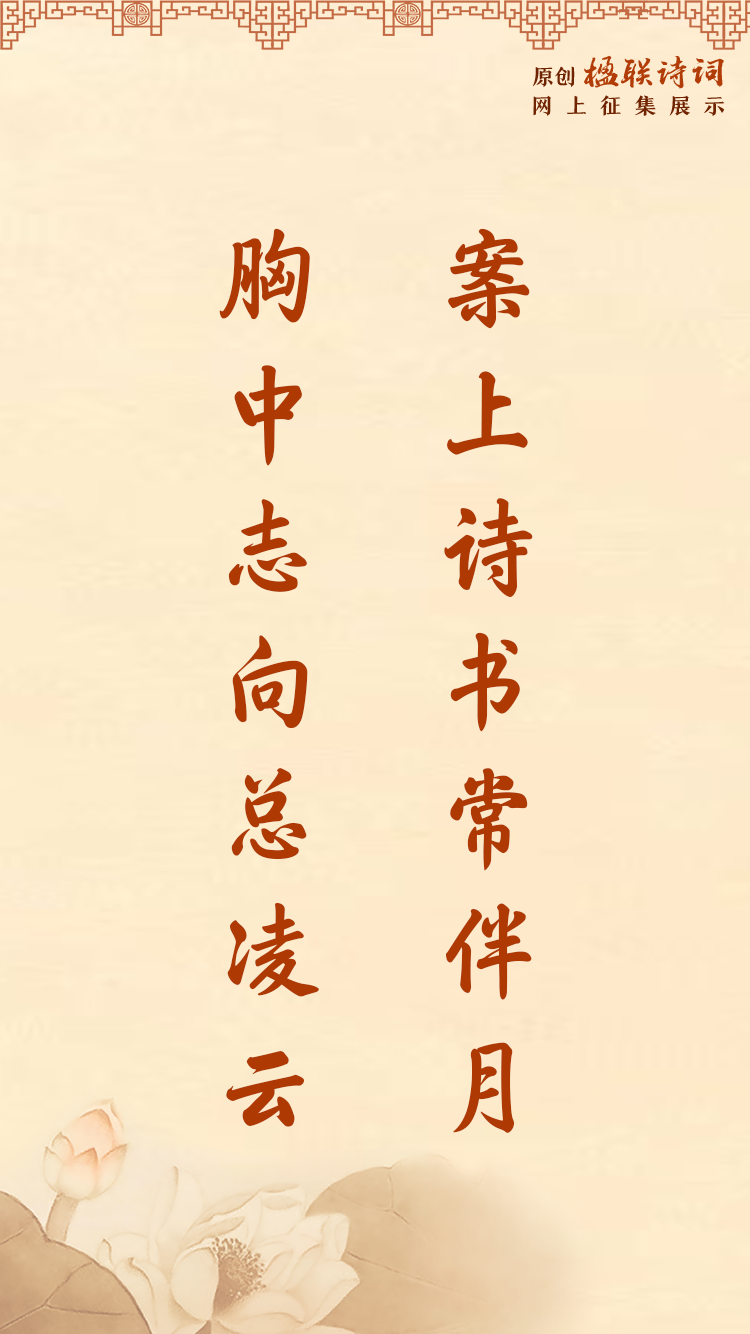 原创 楹联诗词
网上征集展示
案上诗书常伴月
胸中志向总凌云